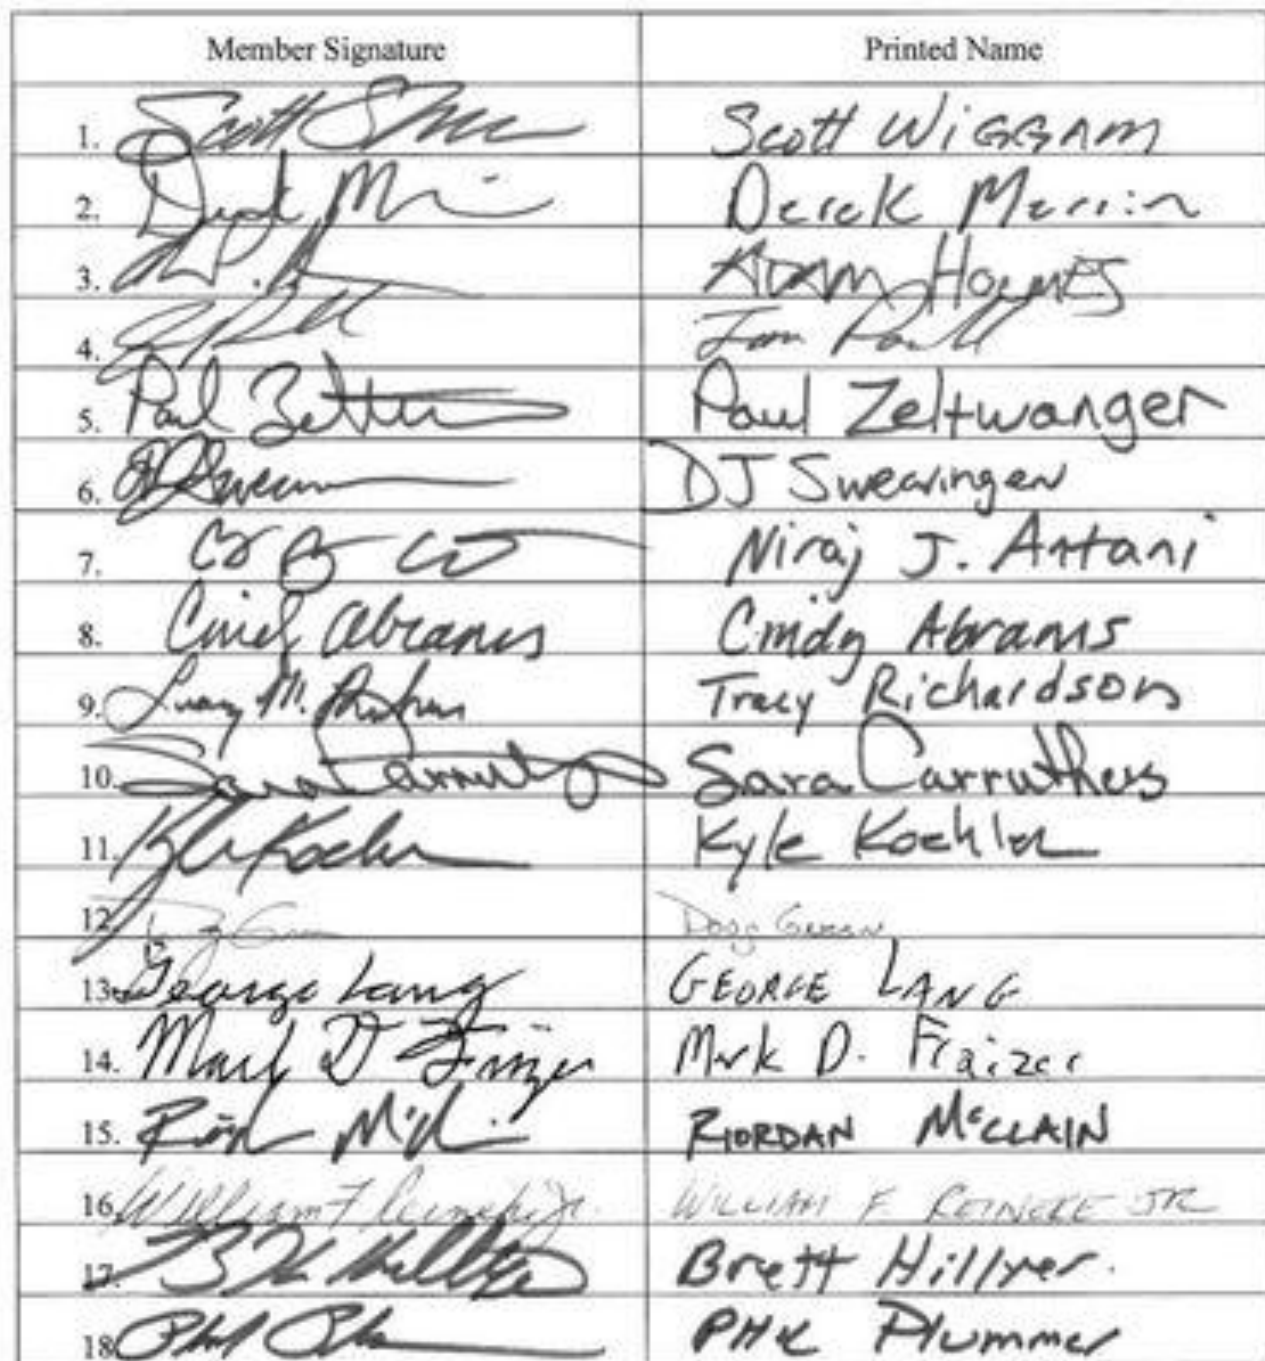 Member Signature Printed Name
1. Scott Scott Wiggam
2. Derek Merrin
3. Adam Holmes
4.
5. Paul Paul Zeltwanger
6. DJ Swearingen
7. Niraj J. Antani
8. Cindy Abrams Cindy Abrams
9. Tracy M. Tracy Richardson
10. Sara Carruthers Sara Carruthers
11. Kyle Koehler Kyle Koehler
12. Doug Green
13. George Lang GEORGE LANG
14. Mark D Mark D. Fraizer
15. RIORDAN McCLAIN
16. William F Reineke Jr. WILLIAM F. REINEKE JR
17. Brett Hillyer.
18. Phil PHIL Plummer